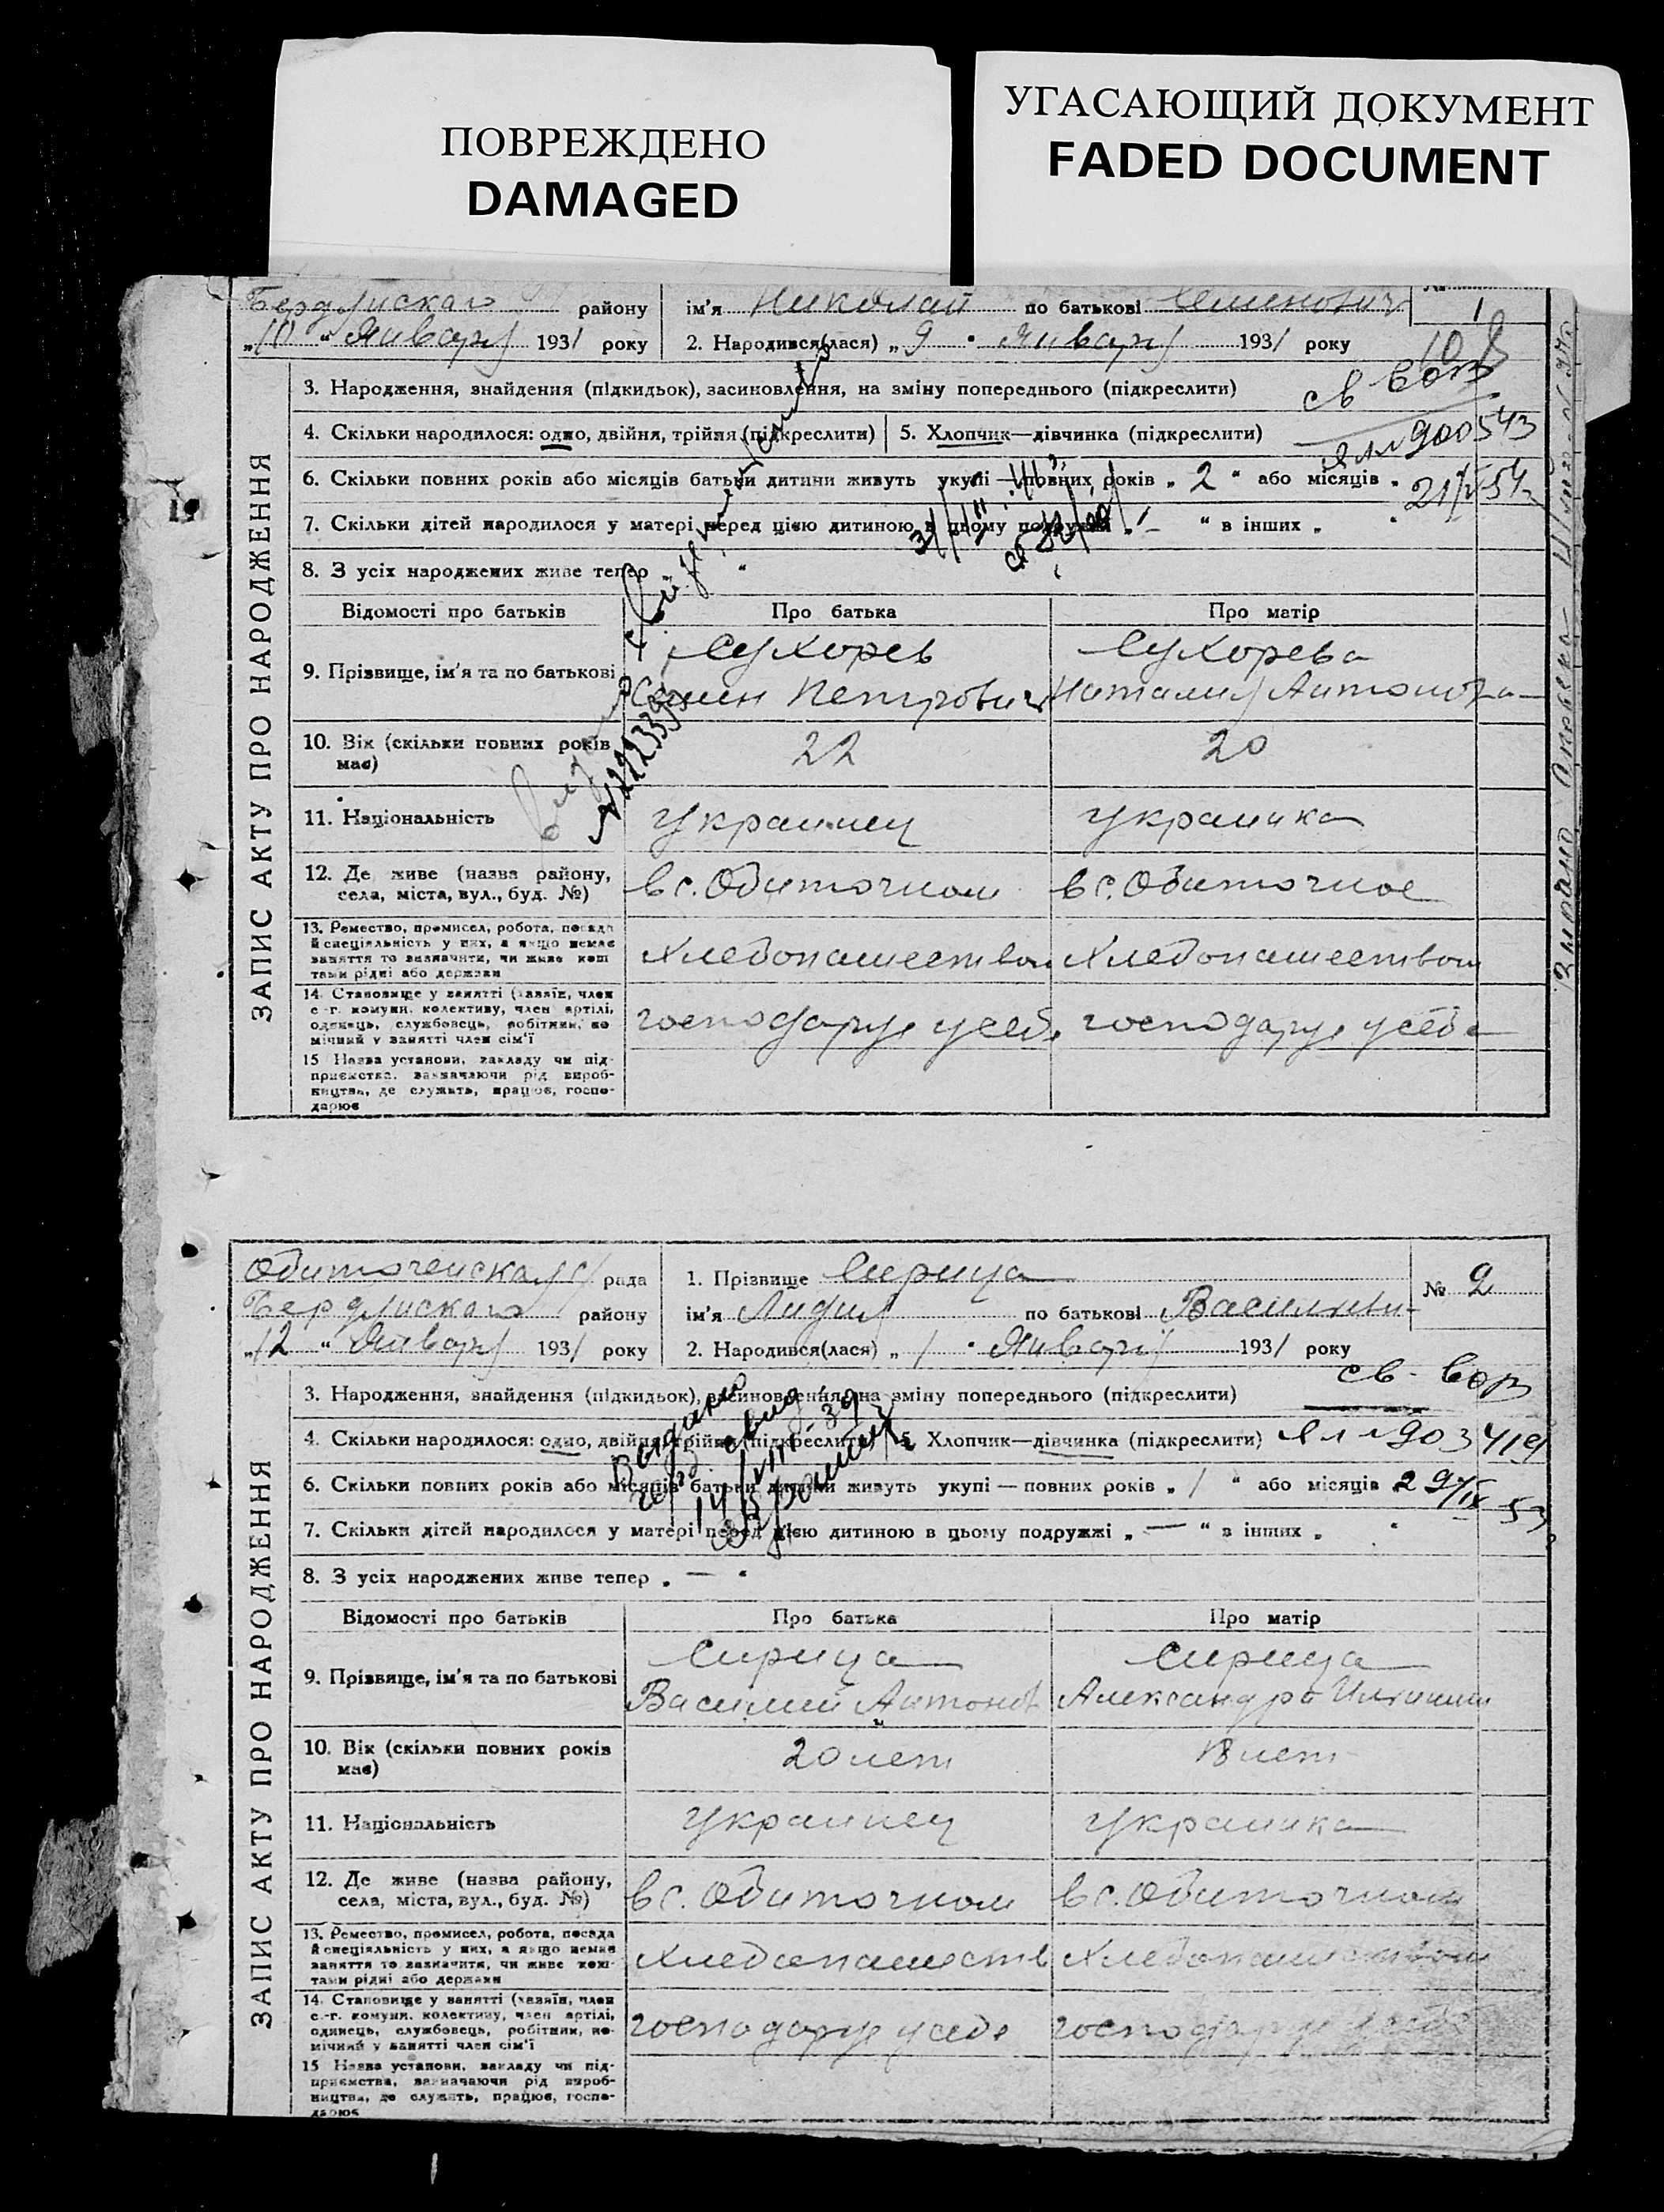 ПОВРЕЖДЕНО
DAMAGED
УГАСАЮЩИЙ ДОКУМЕНТ
FADED DOCUMENT
ЗАПИС АКТУ ПРО НАРОДЖЕННЯ
Бердянскаго району ім'я Николай по батькові Семенович 1
„10“ Января 1931 року 2. Народився(лася) „9“ Января 1931 року
3. Народження, знайдення (підкидьок), засиновлення, на зміну попереднього (підкреслити)
св
4. Скільки народилося: одно, двійня, трійня (підкреслити) 5. Хлопчик—дівчинка (підкреслити)
900543
6. Скільки повних років або місяців батьки дитини живуть укупі — повних років „2“ або місяців „
7. Скільки дітей народилося у матері перед цією дитиною в цьому подружжі „—“ в інших „
8. З усіх народжених живе тепер „ “
Відомості про батьків Про батька Про матір
9. Прізвище, ім'я та по батькові Сухорев Сухорева
Семен Петрович Наталия Антонов
10. Вік (скільки повних років має) 22 20
11. Національність украинец украинка
12. Де живе (назва району, села, міста, вул., буд. №) в с. Обиточном в с. Обиточное
13. Ремество, промисел, робота, посада й спеціяльність у них, а якщо немає заняття то зазначити, чи живе коштами рідні або держави Хлебопашеством Хлебопашеством
14. Становище у занятті (хазяїн, член с.-г. комуни, колективу, член артілі, одинець, службовець, робітник, помічний у занятті член сім'ї господарує у себе господарує у себе
15 Назва установи, закладу чи підприємства, зазначаючи рід виробництва, де служить, працює, господарює
ЗАПИС АКТУ ПРО НАРОДЖЕННЯ
Обиточенская с/рада 1. Прізвище Сирица № 2
Бердянскаго району ім'я Лидия по батькові Васильев-
„12“ Января 1931 року 2. Народився(лася) „1“ Января 1931 року
3. Народження, знайдення (підкидьок), засиновлення, на зміну попереднього (підкреслити)
св.
4. Скільки народилося: одно, двійня, трійня (підкреслити) 5. Хлопчик—дівчинка (підкреслити)
903419
6. Скільки повних років або місяців батьки дитини живуть укупі — повних років „1“ або місяців
29/IX 53
7. Скільки дітей народилося у матері перед цією дитиною в цьому подружжі „—“ в інших „ “
8. З усіх народжених живе тепер „—“
Відомості про батьків Про батька Про матір
9. Прізвище, ім'я та по батькові Сирица Сирица
Василий Антонов Александра
10. Вік (скільки повних років має) 20 лет 18 лет
11. Національність украинец украинка
12. Де живе (назва району, села, міста, вул., буд. №) в с. Обиточном в с. Обиточном
13. Ремество, промисел, робота, посада й спеціяльність у них, а якщо немає заняття то зазначити, чи живе коштами рідні або держави Хлебопашеств Хлебопашеством
14. Становище у занятті (хазяїн, член с.-г. комуни, колективу, член артілі, одинець, службовець, робітник, помічний у занятті член сім'ї господарує у себе господарує у себе
15 Назва установи, закладу чи підприємства, зазначаючи рід виробництва, де служить, працює, господарює
Выдано
свид
14/VIII-39